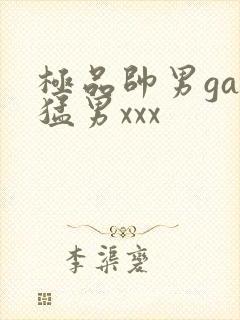 極品帥男ga
猛男xxx
李渠窔